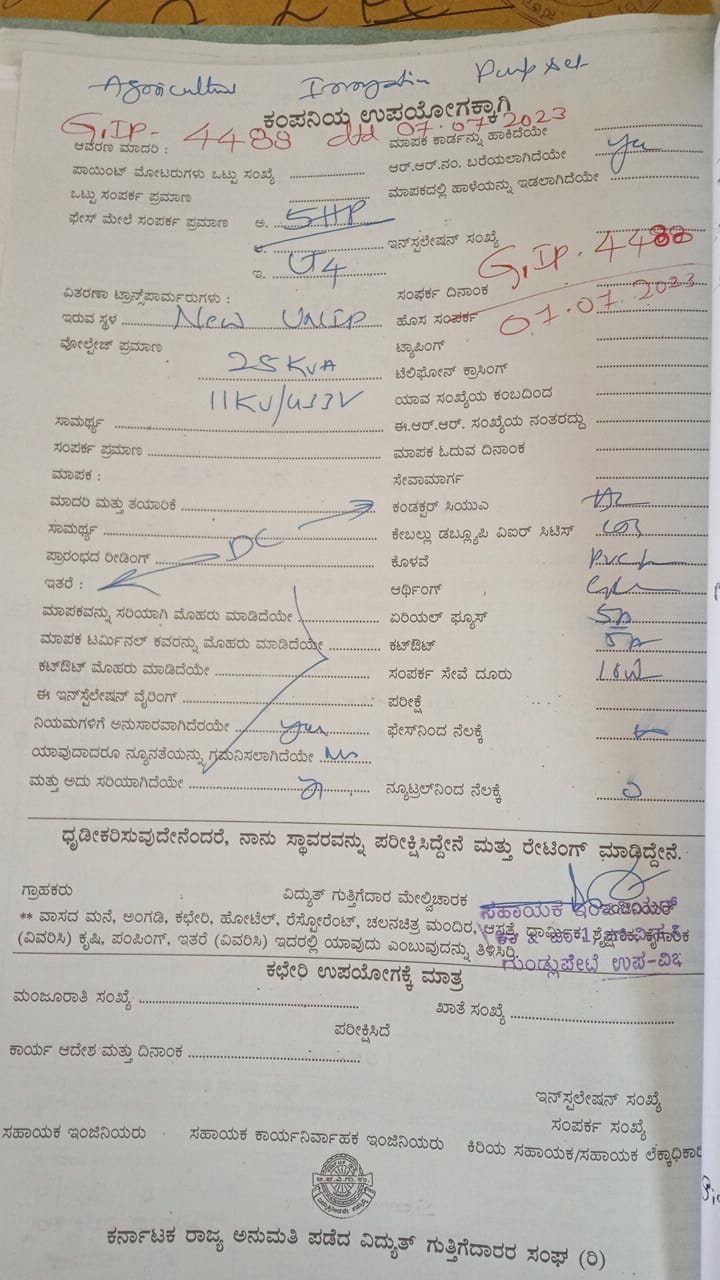 Agricultural Irrigation Pump set
ಕಂಪನಿಯ ಉಪಯೋಗಕ್ಕಾಗಿ
G.IP- 4488 dtd 07.07.2023
ಆವರಣ ಮಾದರಿ :
ಮಾಪಕ ಕಾರ್ಡನ್ನು ಹಾಕಿದೆಯೇ
ಪಾಯಿಂಟ್ ಮೋಟರುಗಳು ಒಟ್ಟು ಸಂಖ್ಯೆ
ಆರ್.ಆರ್.ನಂ. ಬರೆಯಲಾಗಿದೆಯೇ
ಒಟ್ಟು ಸಂಪರ್ಕ ಪ್ರಮಾಣ
ಮಾಪಕದಲ್ಲಿ ಹಾಳೆಯನ್ನು ಇಡಲಾಗಿದೆಯೇ
ಫೇಸ್ ಮೇಲೆ ಸಂಪರ್ಕ ಪ್ರಮಾಣ ಅ. 5HP
ಇನ್‌ಸ್ಪಲೇಷನ್ ಸಂಖ್ಯೆ G.IP. 4488
ಇ.
ವಿತರಣಾ ಟ್ರಾನ್ಸ್‌ಪಾರ್ಮರುಗಳು :
ಸಂಪರ್ಕ ದಿನಾಂಕ
ಇರುವ ಸ್ಥಳ New UNIP
ಹೊಸ ಸಂಪರ್ಕ 07.07.2023
ವೋಲ್ಟೇಜ್ ಪ್ರಮಾಣ
ಟ್ಯಾಪಿಂಗ್
25 KVA
ಟೆಲಿಫೋನ್ ಕ್ರಾಸಿಂಗ್
11KV/433V
ಯಾವ ಸಂಖ್ಯೆಯ ಕಂಬದಿಂದ
ಸಾಮರ್ಥ್ಯ
ಈ.ಆರ್.ಆರ್. ಸಂಖ್ಯೆಯ ನಂತರದ್ದು
ಸಂಪರ್ಕ ಪ್ರಮಾಣ
ಮಾಪಕ ಓದುವ ದಿನಾಂಕ
ಮಾಪಕ :
ಸೇವಾಮಾರ್ಗ
ಮಾದರಿ ಮತ್ತು ತಯಾರಿಕೆ
ಕಂಡಕ್ಟರ್ ಸಿಯುಎ
ಸಾಮರ್ಥ್ಯ
ಕೇಬಲ್ಲು ಡಬ್ಲ್ಯೂಪಿ ವಿಐರ್ ಸಿಟಿಸ್
ಪ್ರಾರಂಭದ ರೀಡಿಂಗ್ DC
ಕೊಳವೆ
ಇತರೆ :
ಆರ್ಥಿಂಗ್
ಮಾಪಕವನ್ನು ಸರಿಯಾಗಿ ಮೊಹರು ಮಾಡಿದೆಯೇ
ಏರಿಯಲ್ ಫ್ಯೂಸ್ 5A
ಮಾಪಕ ಟರ್ಮಿನಲ್ ಕವರನ್ನು ಮೊಹರು ಮಾಡಿದೆಯೇ
ಕಟ್‌ಔಟ್ 5A
ಕಟ್‌ಔಟ್ ಮೊಹರು ಮಾಡಿದೆಯೇ
ಸಂಪರ್ಕ ಸೇವೆ ದೂರು
ಈ ಇನ್‌ಸ್ಪೆಲೇಷನ್ ವೈರಿಂಗ್
ಪರೀಕ್ಷೆ
ನಿಯಮಗಳಿಗೆ ಅನುಸಾರವಾಗಿದೆರಯೇ yes
ಫೇಸ್‌ನಿಂದ ನೆಲಕ್ಕೆ
ಯಾವುದಾದರೂ ನ್ಯೂನತೆಯನ್ನು ಗಮನಿಸಲಾಗಿದೆಯೇ No
ಮತ್ತು ಅದು ಸರಿಯಾಗಿದೆಯೇ
ನ್ಯೂಟ್ರಲ್‌ನಿಂದ ನೆಲಕ್ಕೆ
ಧೃಡೀಕರಿಸುವುದೇನೆಂದರೆ, ನಾನು ಸ್ಥಾವರವನ್ನು ಪರೀಕ್ಷಿಸಿದ್ದೇನೆ ಮತ್ತು ರೇಟಿಂಗ್ ಮಾಡಿದ್ದೇನೆ.
ಗ್ರಾಹಕರು ವಿದ್ಯುತ್ ಗುತ್ತಿಗೆದಾರ ಮೇಲ್ವಿಚಾರಕ
ಸಹಾಯಕ ಇಂಜಿನಿಯರ್
** ವಾಸದ ಮನೆ, ಅಂಗಡಿ, ಕಛೇರಿ, ಹೋಟೆಲ್, ರೆಸ್ಟೋರೆಂಟ್, ಚಲನಚಿತ್ರ ಮಂದಿರ, ಆಸ್ಪತ್ರೆ, ಧಾರ್ಮಿಕ, ಶೈಕ್ಷಣಿಕ, ಕೈಗಾರಿಕ
(ವಿವರಿಸಿ) ಕೃಷಿ, ಪಂಪಿಂಗ್, ಇತರೆ (ವಿವರಿಸಿ) ಇದರಲ್ಲಿ ಯಾವುದು ಎಂಬುವುದನ್ನು ತಿಳಿಸಿರಿ.
ಗುಂಡ್ಲುಪೇಟೆ ಉಪ-ವಿಭ
ಕಛೇರಿ ಉಪಯೋಗಕ್ಕೆ ಮಾತ್ರ
ಮಂಜೂರಾತಿ ಸಂಖ್ಯೆ ಖಾತೆ ಸಂಖ್ಯೆ
ಪರೀಕ್ಷಿಸಿದೆ
ಕಾರ್ಯ ಆದೇಶ ಮತ್ತು ದಿನಾಂಕ
ಇನ್‌ಸ್ಪಲೇಷನ್ ಸಂಖ್ಯೆ
ಸಂಪರ್ಕ ಸಂಖ್ಯೆ
ಸಹಾಯಕ ಇಂಜಿನಿಯರು ಸಹಾಯಕ ಕಾರ್ಯನಿರ್ವಾಹಕ ಇಂಜಿನಿಯರು ಕಿರಿಯ ಸಹಾಯಕ/ಸಹಾಯಕ ಲೆಕ್ಕಾಧಿಕಾರಿ
ಕರ್ನಾಟಕ ರಾಜ್ಯ ಅನುಮತಿ ಪಡೆದ ವಿದ್ಯುತ್ ಗುತ್ತಿಗೆದಾರರ ಸಂಘ (ರಿ)